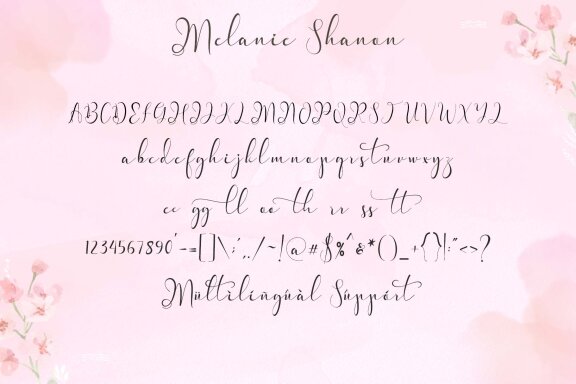 Melanie Shanon
ABCDEFGHIJKLMNOPQRSTUVWXYZ
abcdefghijklmnopqrstuvwxyz
cc gg ll oo th rr ss tt
1234567890'-=[]\;',./~!@#$%^&*()_+{}|:"<>?
Múltilingúàl Súppórt